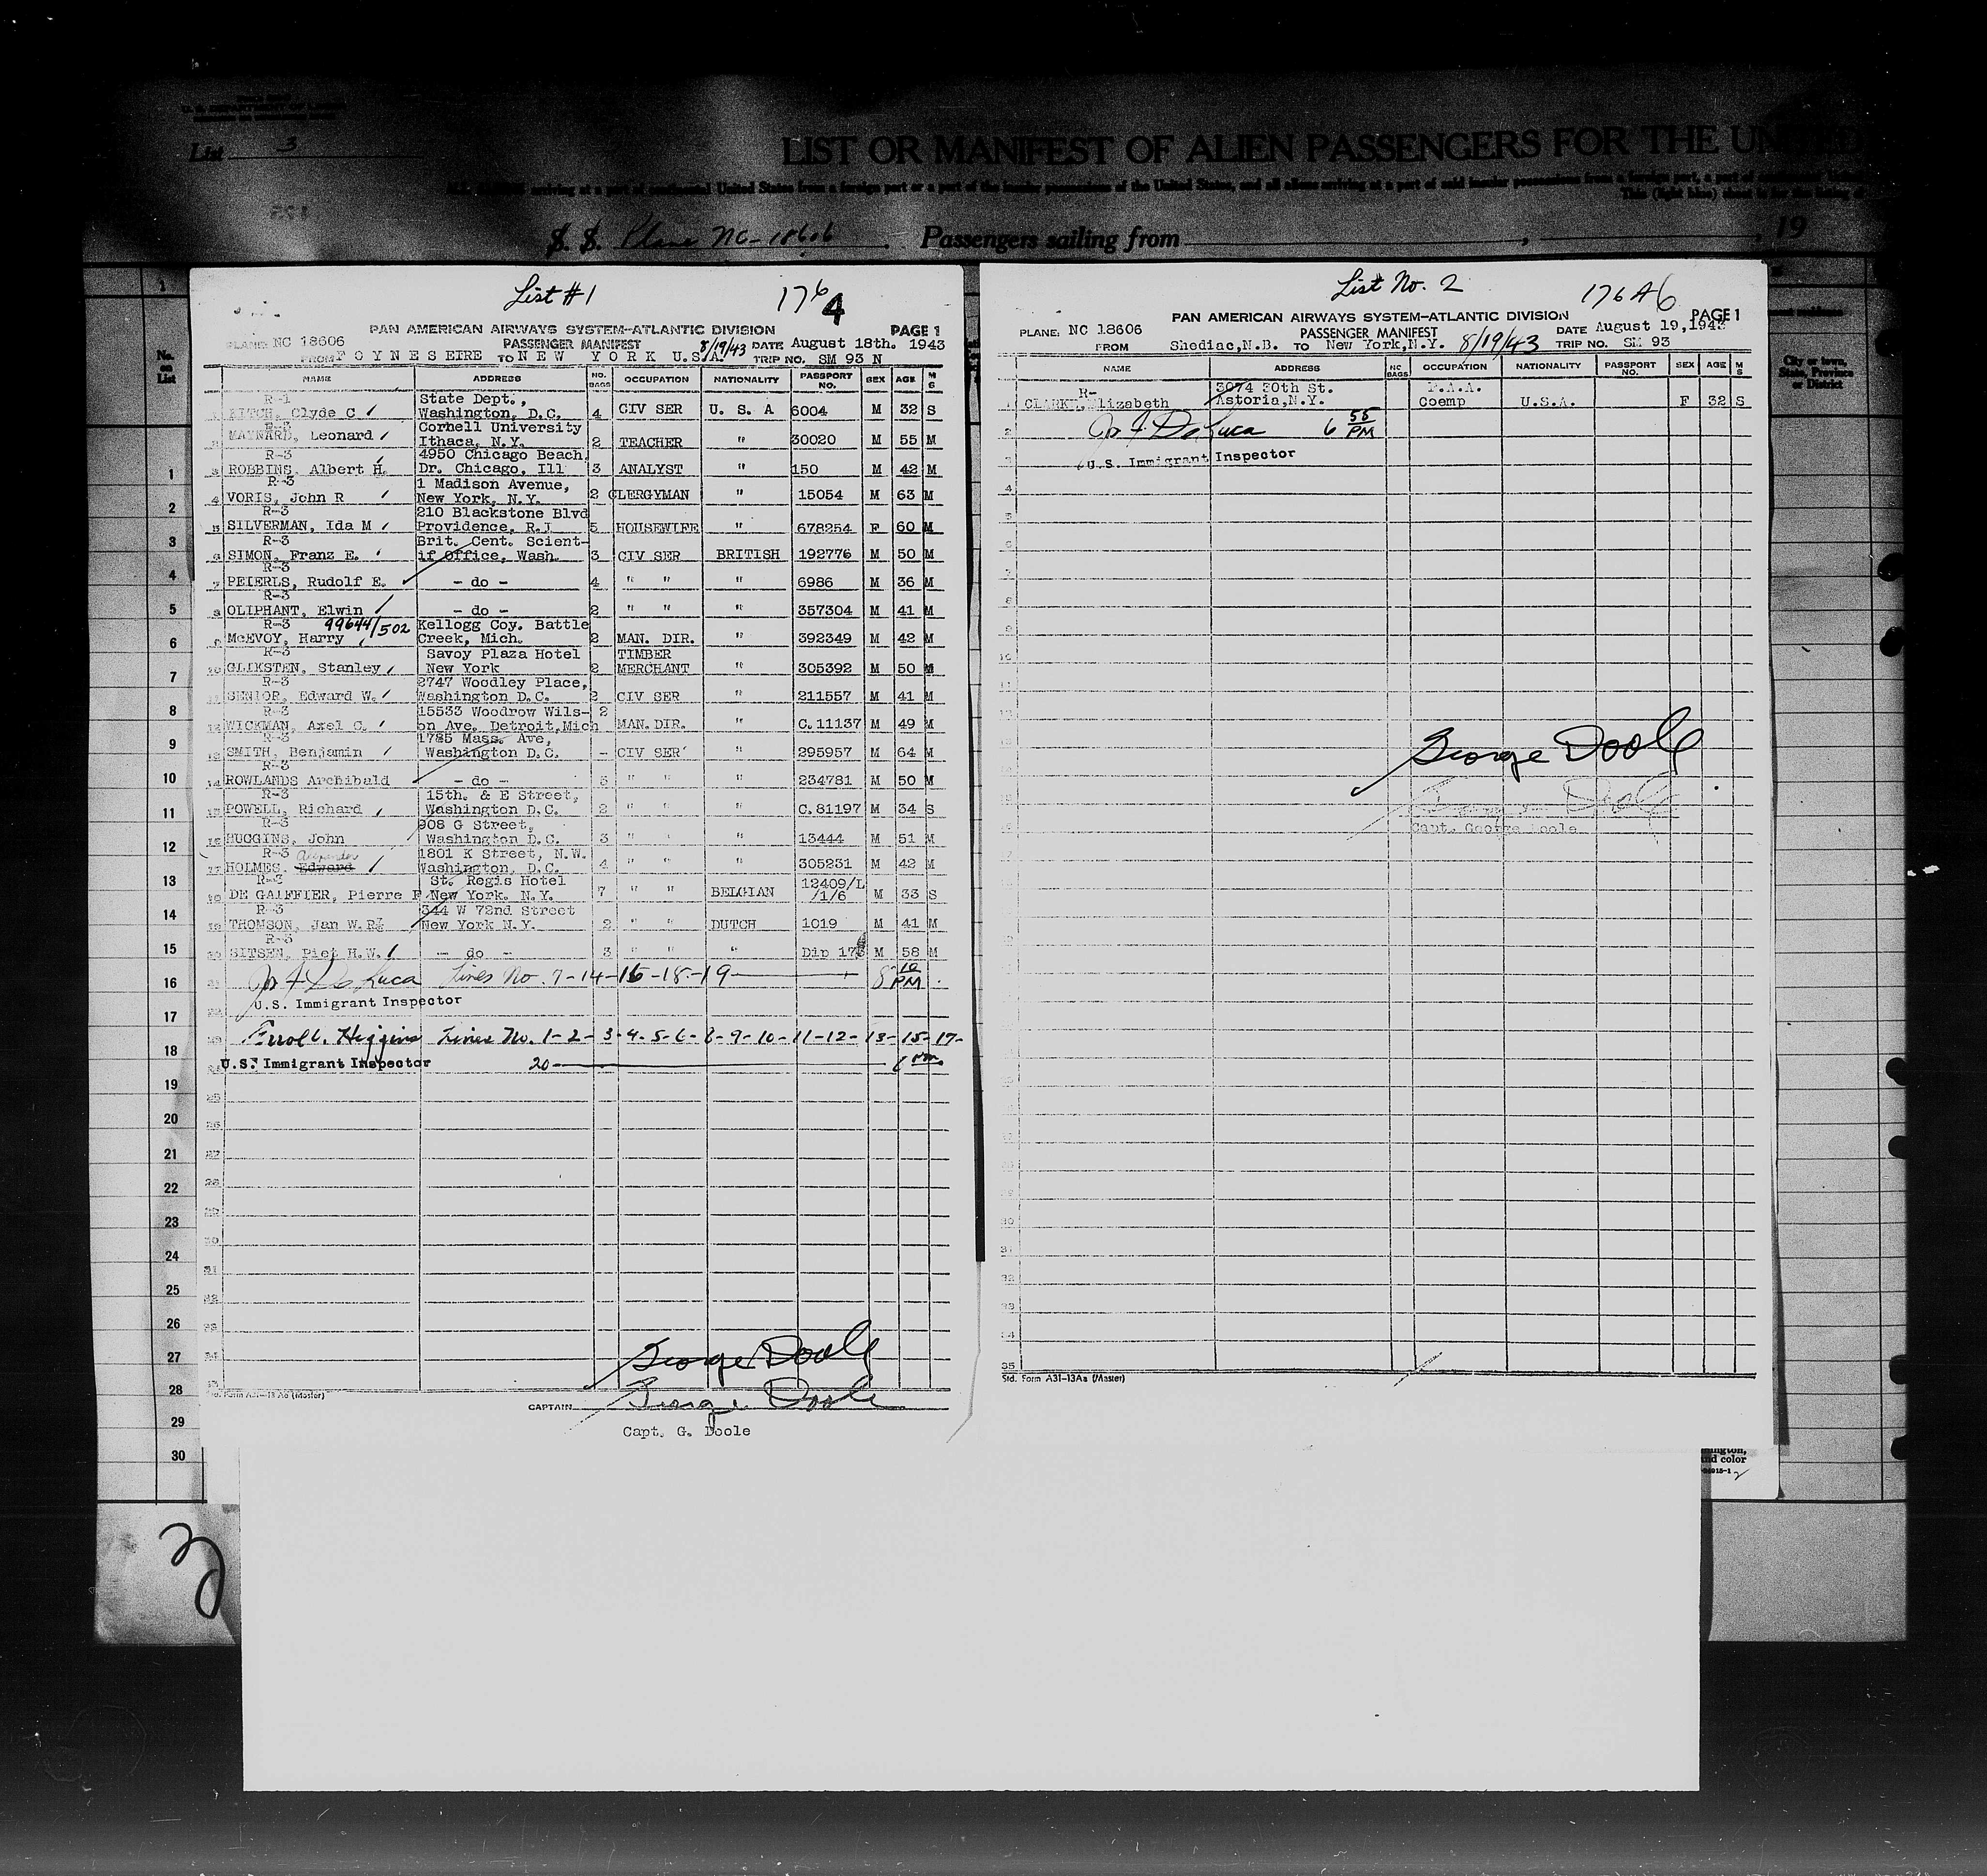 List 3
LIST OR MANIFEST OF ALIEN PASSENGERS FOR THE UNITED
S. S. Plane NC-18606 Passengers sailing from , 19
List #1
176
4
PAN AMERICAN AIRWAYS SYSTEM—ATLANTIC DIVISION PAGE 1
PLANE: NC 18606 PASSENGER MANIFEST 8/19/43 DATE August 18th. 1943
FROM FOYNES EIRE TO NEW YORK U.S.A. TRIP NO. SM 93 N
NAME ADDRESS NO. BAGS OCCUPATION NATIONALITY PASSPORT NO. SEX AGE M S
R-1 State Dept.,
1 Clyde C Washington, D.C. 4 CIV SER U. S. A 6004 M 32 S
R-3 Cornell University
2 MAYNARD, Leonard Ithaca, N.Y. 2 TEACHER " 30020 M 55 M
R-3 4950 Chicago Beach,
3 ROBBINS, Albert H. Dr. Chicago, Ill 3 ANALYST " 150 M 42 M
R-3 1 Madison Avenue,
4 VORIS, John R New York, N.Y. 2 CLERGYMAN " 15054 M 63 M
R-3 210 Blackstone Blvd
5 SILVERMAN, Ida M Providence, R.I 5 HOUSEWIFE " 678254 F 60 M
R-3 Brit. Cent. Scient-
6 SIMON, Franz E. if Office, Wash. 3 CIV SER BRITISH 192776 M 50 M
R-3
7 PEIERLS, Rudolf E. - do - 4 " " " 6986 M 36 M
R-3
8 OLIPHANT, Elwin - do - 2 " " " 357304 M 41 M
R-3 99644/502 Kellogg Coy. Battle
9 McEVOY, Harry Creek, Mich. 2 MAN. DIR. " 392349 M 42 M
R-3 Savoy Plaza Hotel TIMBER
10 GLIKSTEN, Stanley New York 2 MERCHANT " 305392 M 50 M
R-3 2747 Woodley Place,
11 SENIOR, Edward W. Washington D.C. 2 CIV SER " 211557 M 41 M
R-3 15533 Woodrow Wils- 2
12 WICKMAN, Axel C. on Ave. Detroit,Mich MAN. DIR. " C.11137 M 49 M
R-3 1785 Mass. Ave,
13 SMITH, Benjamin Washington D.C. - CIV SER " 295957 M 64 M
R-3
14 ROWLANDS Archibald - do - 3 " " " 234781 M 50 M
R-3 15th. & E Street,
15 POWELL, Richard Washington D.C. 2 " " " C.81197 M 34 S
R-3 908 G Street,
16 HUGGINS, John Washington D.C. 3 " " " 13444 M 51 M
R-3 Alexander 1801 K Street, N.W.
17 HOLMES, Edward Washington, D.C. 4 " " " 305231 M 42 M
R-3 St. Regis Hotel 12409/L
18 DE GAIFFIER, Pierre F New York. N.Y. 7 " " BELGIAN /1/6 M 33 S
R-3 344 W 72nd Street
19 THOMSON, Jan W.R. New York N.Y. 2 " " DUTCH 1019 M 41 M
R-3
20 SITSEN, Piet H.W. - do - 3 " " " Dip 176 M 58 M
Jos F De Luca Lines No. 7-14-16-18-19 8 10 PM
U.S. Immigrant Inspector
Errol C. Higgins Lines No. 1-2-3-4-5-6-8-9-10-11-12-13-15-17-
U.S. Immigrant Inspector 20
George Doole
CAPTAIN George Doole
Capt. G. Doole
List No. 2
176A
6
PAN AMERICAN AIRWAYS SYSTEM—ATLANTIC DIVISION PAGE 1
PLANE: NC 18606 PASSENGER MANIFEST DATE August 19,1943
FROM Shediac,N.B. TO New York,N.Y. 8/19/43 TRIP NO. SM 93
NAME ADDRESS NO BAGS OCCUPATION NATIONALITY PASSPORT NO. SEX AGE M S
R- 3074 30th St. P.A.A.
1 CLARKE, Elizabeth Astoria,N.Y. Coemp U.S.A. F 32 S
Jos F De Luca 6 55 PM
U.S. Immigrant Inspector
George Doole
George Doole
Capt. George Doole
35
Std. Form A31-13Aa (Master)
No. on List
1
2
3
4
5
6
7
8
9
10
11
12
13
14
15
16
17
18
19
20
21
22
23
24
25
26
27
28
29
30
City or town,
State, Province
or District
and color
2